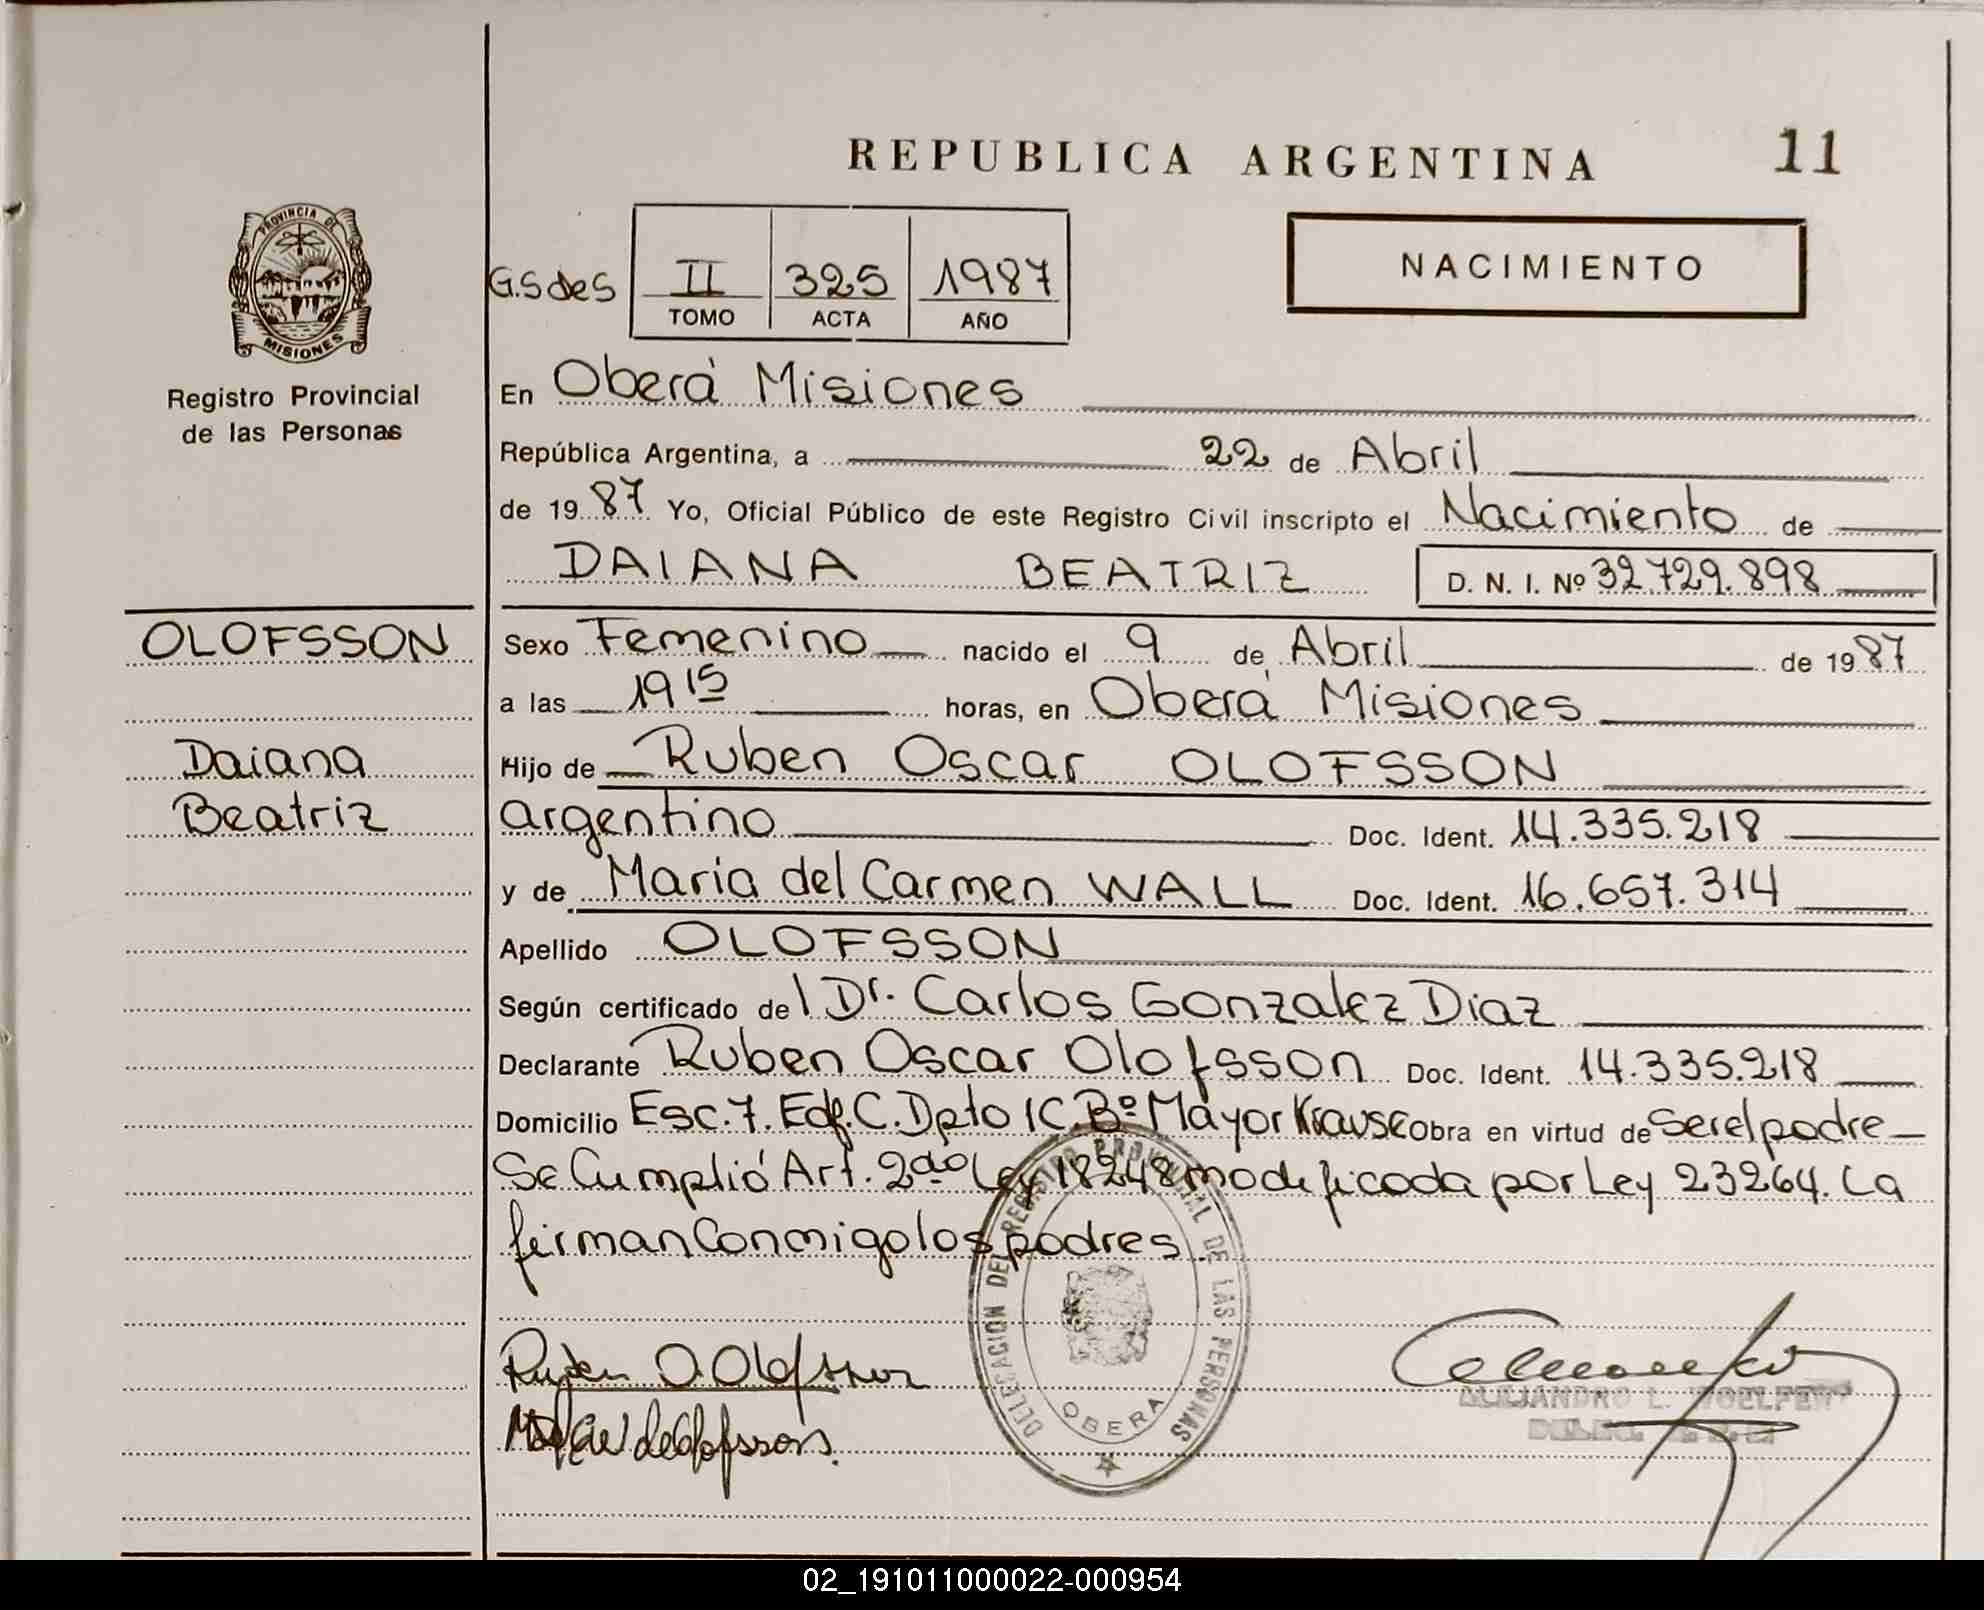 REPUBLICA ARGENTINA
11
PROVINCIA DE
MISIONES
Registro Provincial
de las Personas
G.S des
II 325 1987
TOMO ACTA AÑO
NACIMIENTO
En Oberá Misiones
República Argentina, a 22 de Abril
de 1987 Yo, Oficial Público de este Registro Civil inscripto el Nacimiento de
DAIANA BEATRIZ D. N. I. Nº 32.729.898
OLOFSSON
Daiana
Beatriz
Sexo Femenino nacido el 9 de Abril de 1987
a las 19 15 horas, en Oberá Misiones
Hijo de Ruben Oscar OLOFSSON
argentino Doc. Ident. 14.335.218
y de Maria del Carmen WALL Doc. Ident. 16.657.314
Apellido OLOFSSON
Según certificado del Dr. Carlos Gonzalez Diaz
Declarante Ruben Oscar Olofsson Doc. Ident. 14.335.218
Domicilio Esc. 7. Edf. C. Dpto 1C. Bº Mayor Krause Obra en virtud de ser el padre
Se Cumplió Art. 2do Ley 18248 modificada por Ley 23264. La
firman Conmigo los padres.
DELEGACION DEL REGISTRO PROVINCIAL DE LAS PERSONAS
OBERA
Ruben O. Olofsson
de Olofsson.
ALEJANDRO L.
02_191011000022-000954